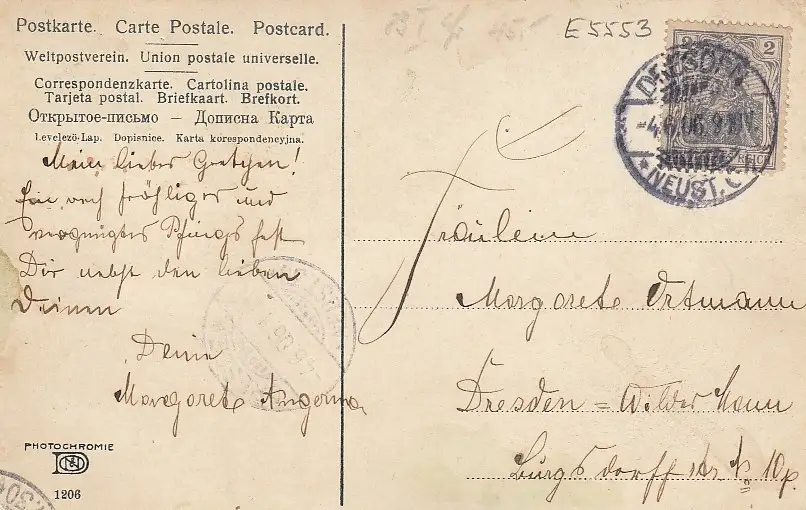 Postkarte. Carte Postale. Postcard.
Weltpostverein. Union postale universelle.
Correspondenzkarte. Cartolina postale.
Tarjeta postal. Briefkaart. Brefkort.
Открытое-письмо — Дописна Карта
Levelező-Lap. Dopisnice. Karta korespondencyjna.
Mein liebes Gretchen!
Ein rech fröhliges und
vergnügtes Pfingsfest
Dir nebst den lieben
Deinen
Deine
Margarete
PHOTOCHROMIE
1206
E5553
2 2
REICH
DRESDEN
-4.6.06. 9
NEUST.
Fräulein
Margarete Ortmann
Dresden = Wilder Mann
Burgsdorffstr № 10p.